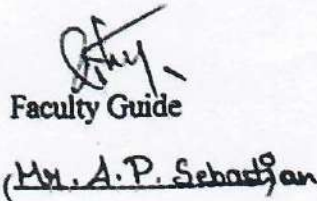 Faculty Guide
(Mr. A.P. Sebastian